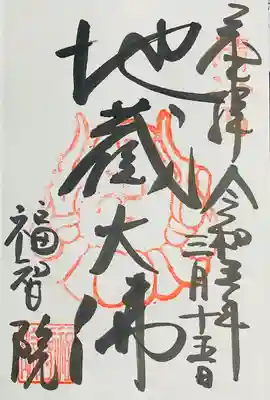 奉拝 令和五年
三月十五日
地蔵大佛
福智院